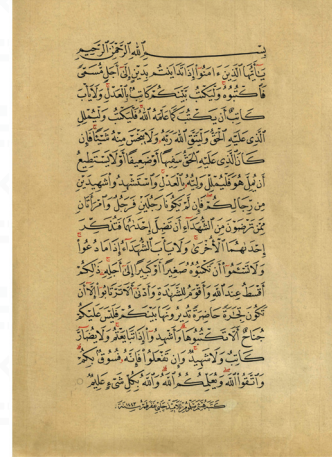 بِسْمِ اللهِ الرَّحْمٰنِ الرَّحِيمِ
يَاأَيُّهَا الَّذِينَ ءَامَنُوا إِذَا تَدَايَنْتُمْ بِدَيْنٍ إِلَى أَجَلٍ مُسَمًّى
فَاكْتُبُوهُ وَلْيَكْتُبْ بَيْنَكُمْ كَاتِبٌ بِالْعَدْلِ وَلَا يَأْبَ
كَاتِبٌ أَنْ يَكْتُبَ كَمَا عَلَّمَهُ اللهُ فَلْيَكْتُبْ وَلْيُمْلِلِ
الَّذِي عَلَيْهِ الْحَقُّ وَلْيَتَّقِ اللهَ رَبَّهُ وَلَا يَبْخَسْ مِنْهُ شَيْئًا فَإِنْ
كَانَ الَّذِي عَلَيْهِ الْحَقُّ سَفِيهًا أَوْ ضَعِيفًا أَوْ لَا يَسْتَطِيعُ
أَنْ يُمِلَّ هُوَ فَلْيُمْلِلْ وَلِيُّهُ بِالْعَدْلِ وَاسْتَشْهِدُوا شَهِيدَيْنِ
مِنْ رِجَالِكُمْ فَإِنْ لَمْ يَكُونَا رَجُلَيْنِ فَرَجُلٌ وَامْرَأَتَانِ
مِمَّنْ تَرْضَوْنَ مِنَ الشُّهَدَاءِ أَنْ تَضِلَّ إِحْدَىهُمَا فَتُذَكِّرَ
إِحْدَىهُمَا الْأُخْرَى وَلَا يَأْبَ الشُّهَدَاءُ إِذَا مَا دُعُوا
وَلَا تَسْئَمُوا أَنْ تَكْتُبُوهُ صَغِيرًا أَوْ كَبِيرًا إِلَى أَجَلِهِ ذٰلِكُمْ
أَقْسَطُ عِنْدَ اللهِ وَأَقْوَمُ لِلشَّهَادَةِ وَأَدْنَى أَلَّا تَرْتَابُوا إِلَّا أَنْ
تَكُونَ تِجَارَةً حَاضِرَةً تُدِيرُونَهَا بَيْنَكُمْ فَلَيْسَ عَلَيْكُمْ
جُنَاحٌ أَلَّا تَكْتُبُوهَا وَأَشْهِدُوا إِذَا تَبَايَعْتُمْ وَلَا يُضَارَّ
كَاتِبٌ وَلَا شَهِيدٌ وَإِنْ تَفْعَلُوا فَإِنَّهُ فُسُوقٌ بِكُمْ
وَاتَّقُوا اللهَ وَيُعَلِّمُكُمُ اللهُ وَاللهُ بِكُلِّ شَيْءٍ عَلِيمٌ